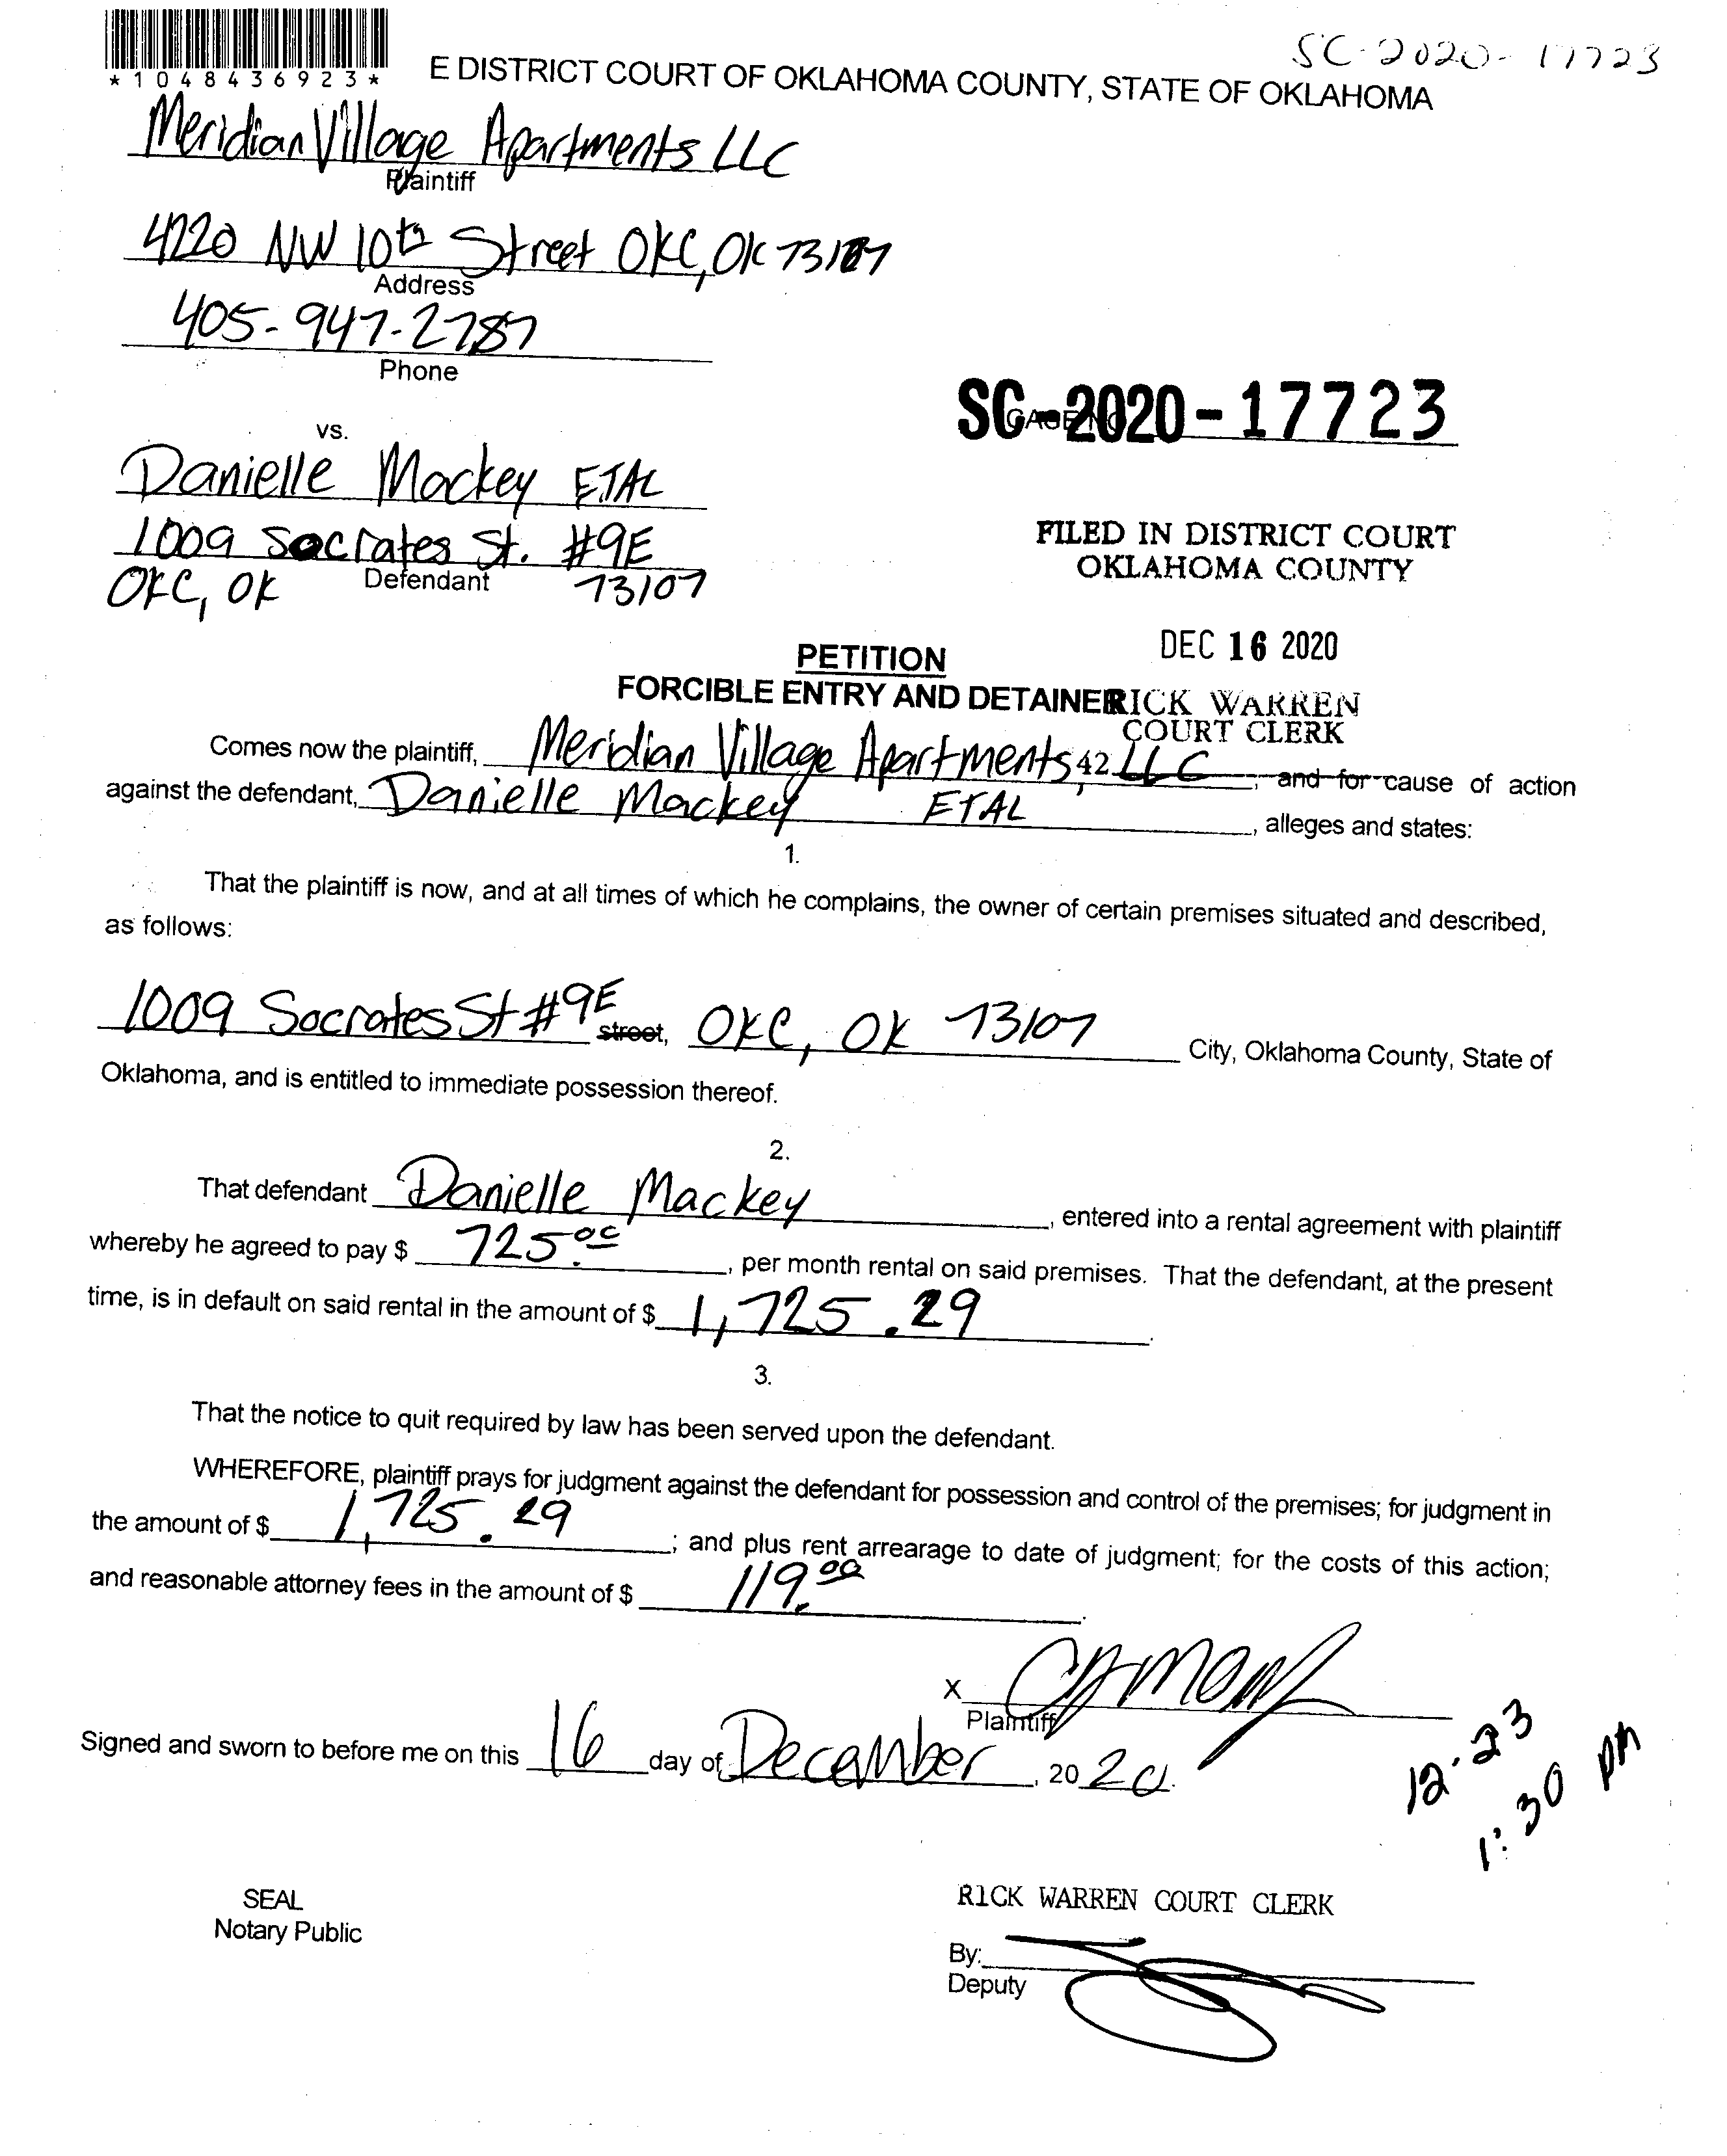 SC-2020-17723
*1048436923*
E DISTRICT COURT OF OKLAHOMA COUNTY, STATE OF OKLAHOMA
Meridian Village Apartments LLC
Plaintiff
4220 NW 10th Street OKC, OK 73107
Address
405-947-2787
Phone
SC-2020-17723
vs.
Danielle Mackey ETAL
1009 Socrates St. #9E
Defendant
OKC, OK 73107
FILED IN DISTRICT COURT
OKLAHOMA COUNTY
DEC 16 2020
PETITION
FORCIBLE ENTRY AND DETAINER
RICK WARREN
COURT CLERK
Comes now the plaintiff, Meridian Village Apartments, 42 LLC, and for cause of action
against the defendant, Danielle Mackey ETAL, alleges and states:
1.
That the plaintiff is now, and at all times of which he complains, the owner of certain premises situated and described,
as follows:
1009 Socrates St #9E street, OKC, OK 73107 City, Oklahoma County, State of
Oklahoma, and is entitled to immediate possession thereof.
2.
That defendant Danielle Mackey, entered into a rental agreement with plaintiff
whereby he agreed to pay $ 725.00, per month rental on said premises. That the defendant, at the present
time, is in default on said rental in the amount of $ 1,725.29.
3.
That the notice to quit required by law has been served upon the defendant.
WHEREFORE, plaintiff prays for judgment against the defendant for possession and control of the premises; for judgment in
the amount of $ 1,725.29; and plus rent arrearage to date of judgment; for the costs of this action;
and reasonable attorney fees in the amount of $ 119.00.
X
Plaintiff
Signed and sworn to before me on this 16 day of December, 2020.
12-23
1:30 PM
SEAL
Notary Public
RICK WARREN COURT CLERK
By:
Deputy